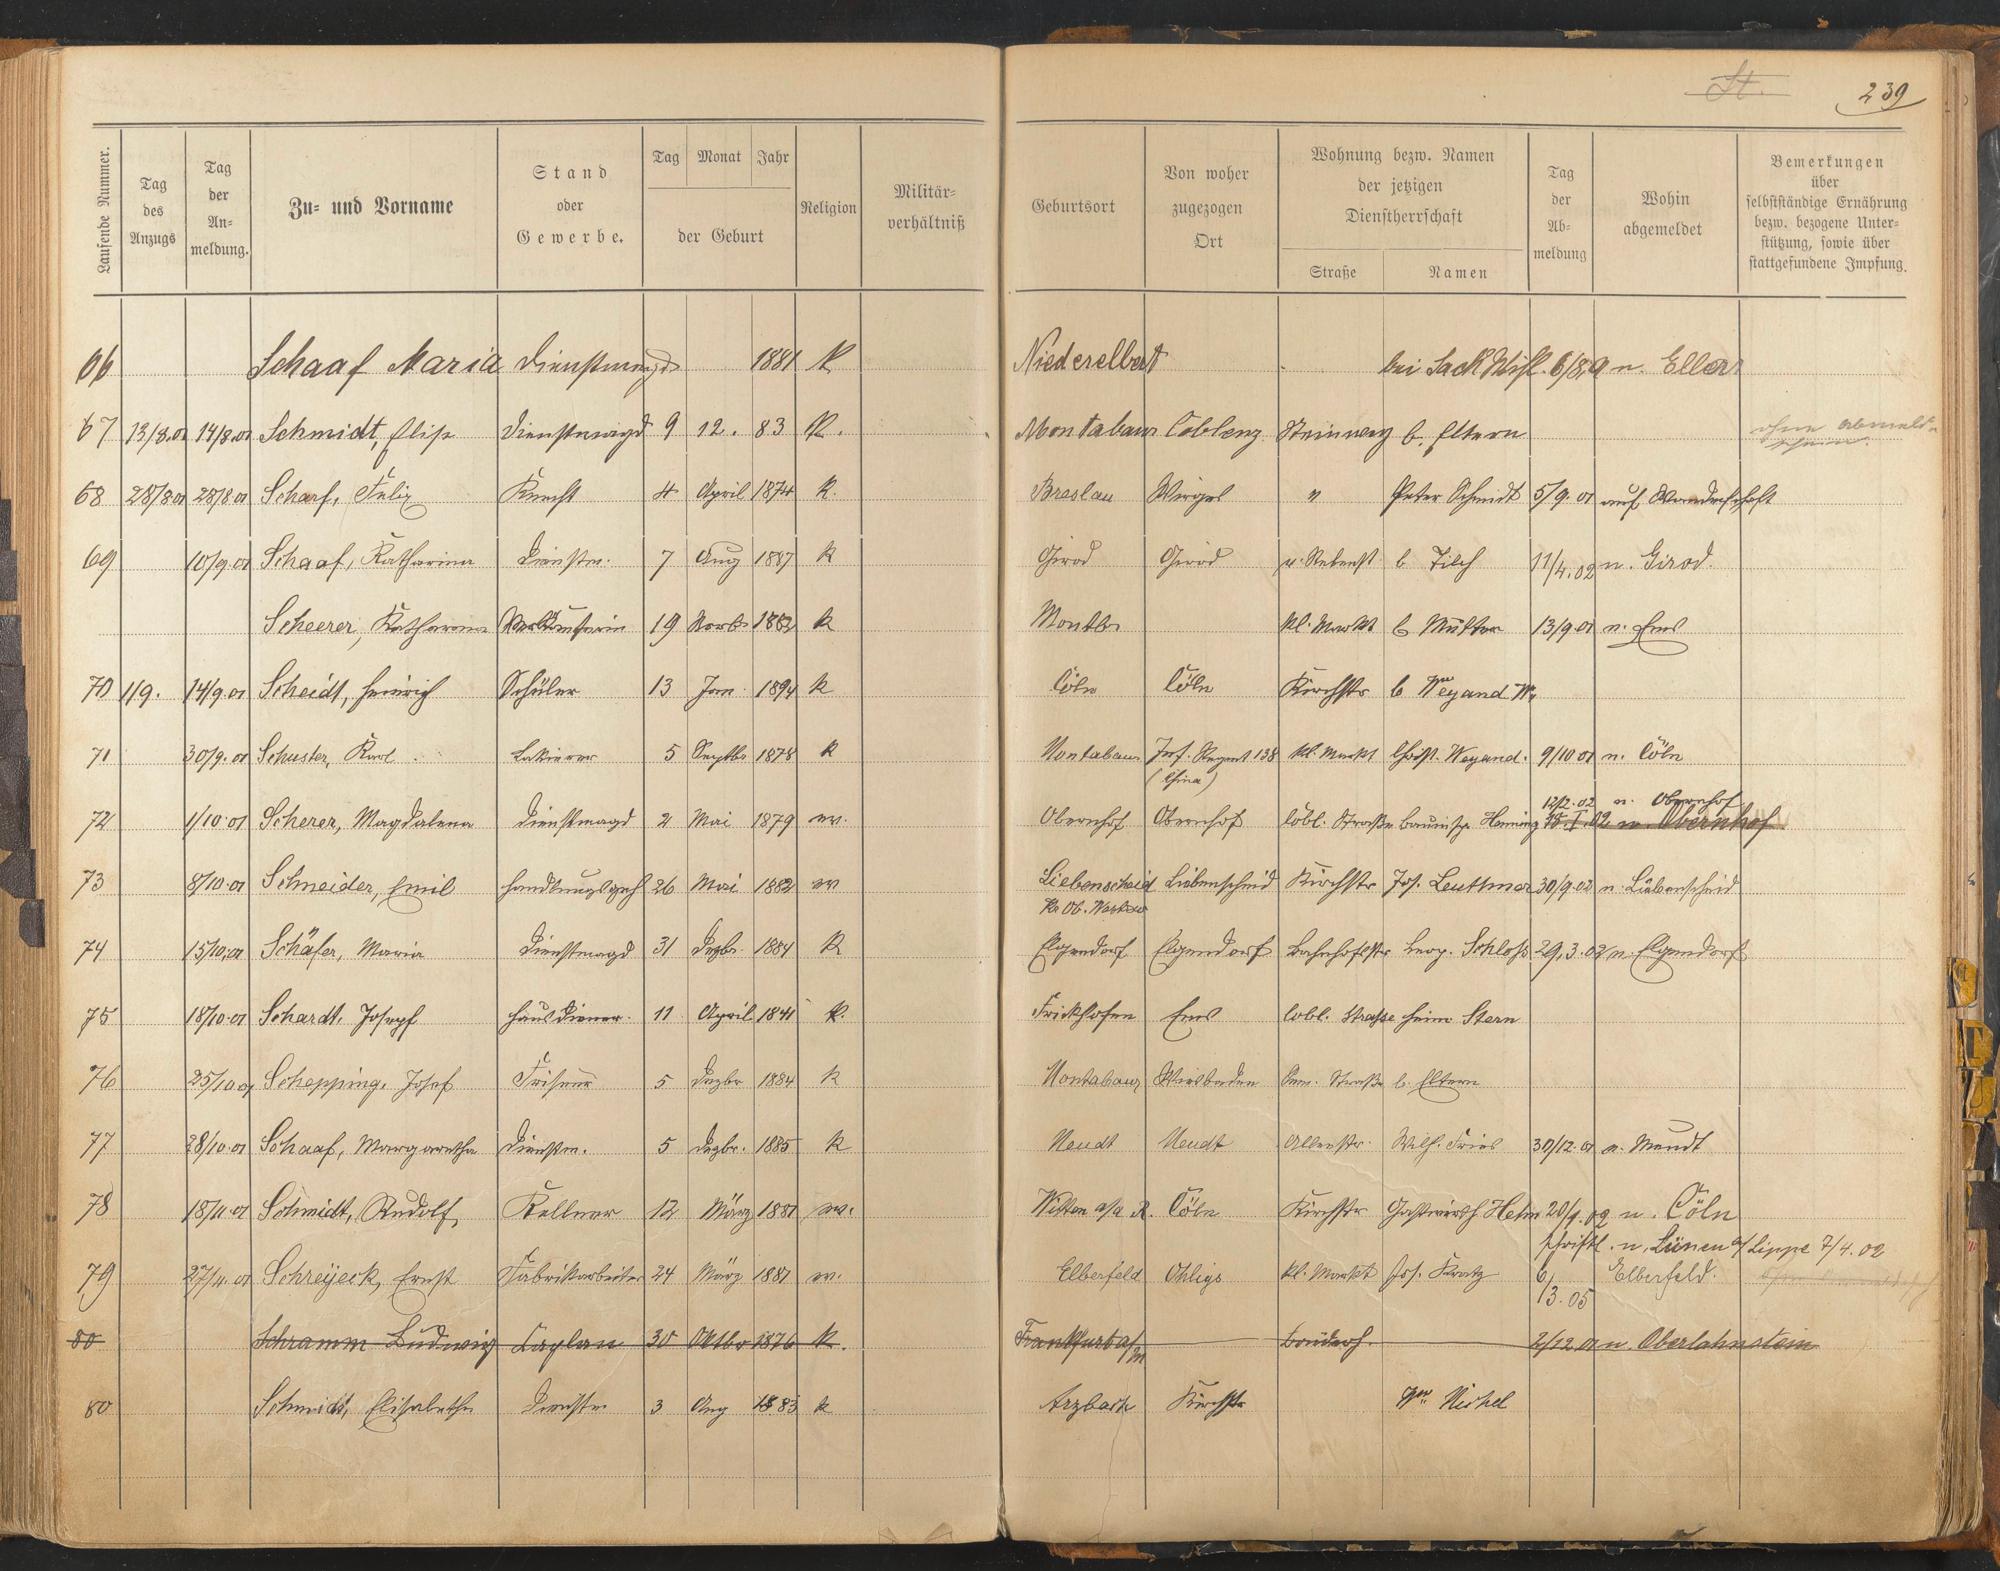 St.
239
Laufende Nummer. Tag des Anzugs Tag der Anmeldung. Zu- und Vorname Stand oder Gewerbe. Tag Monat Jahr der Geburt Religion Militärverhältniß Geburtsort Von woher zugezogen Ort Wohnung bezw. Namen der jetzigen Dienstherrschaft Straße Namen Tag der Abmeldung Wohin abgemeldet Bemerkungen über selbstständige Ernährung bezw. bezogene Unterstützung, sowie über stattgefundene Impfung.
66 Schaaf Maria Dienstmagd 1881 k Niederelbert bei Sack n. Eltern
67 13/8.01 14/8.01 Schmidt, Elise Dienstmagd 9 12. 83 K. Montabaur Coblenz Steinweg b. Eltern ohne Abmeldeschein.
68 28/8 01 28/8 01 Scharf, Felix Knecht 4 April 1874 K. Breslau Wirges " Peter Schmidt 5/9. 01 auf Wanderschaft
69 10/9.01 Schaaf, Katharina Dienstm. 7 Aug 1887 k Girod Girod b Tilch 11/4.02 n. Girod.
Scheerer, Katharina Verkäuferin 19 Novb. 1882 k Montb. kl. Markt b Mutter 13/9.01 n. Ems
70 1/9. 14/9.01 Scheidt, Heinrich Schüler 13 Jan. 1894 k Cöln Cöln Kirchstr b Weyand Ww
71 30/9.01 Schuster, Karl Lakierer 5 Septbr 1878 k Montabaur Inf. Regmt 138 (China) kl. Markt Christ. Weyand. 9/10 01 n. Cöln
72 1/10.01 Scherer, Magdalena Dienstmagd 2 Mai 1879 ev. Obernhof Obernhof Cobl. Straße 12/2.02 n. Obernhof
18.I.02 n. Obernhof
73 8/10.01 Schneider, Emil Handlungsgeh 26 Mai 1882 ev Liebenscheid Liebenscheid Kirchstr Jos. Leuttner 30/9.02 n. Liebenscheid
74 15/10.01 Schäfer, Maria Dienstmagd 31 Dezbr. 1884 k Elgendorf Elgendorf Bahnhofstr Leop. Schloß 29.3.02 n. Elgendorf
75 18/10.01 Schardt, Joseph Hausdiener. 11 April 1841 k. Frickhofen Ems Cobl. Straße Stern
76 25/10 01 Schepping, Josef Friseur 5 Dezbr 1884 k Montabaur Wiesbaden Straße b. Eltern
77 28/10.01 Schaaf, Margaretha Dienstm. 5 Dezbr. 1885 k Meudt Meudt Wilh. Fries 30/12.01 n. Meudt
78 18/11.01 Schmidt, Rudolf Kellner 12 März 1881 ev. Witten a/d R. Cöln Kirchstr Gastwirth Hehn 20/1.02 n. Cöln
schriftl. n. Lünen a/Lippe 7/4.02
79 27/11.01 Schreyeck, Ernst Fabrikarbeiter 24 März 1881 ev. Elberfeld Ohligs kl. Markt Jos. Kratz 6/3.05 Elberfeld.
80 Schramm Ludwig Caplan 30 Oktbr 1876 k. Frankfurt a/M 2/12 01 n. Oberlahnstein
80 Schmidt, Elisabetha Dienstm 3 Aug 1883 k Arzbach Kirchstr Michel